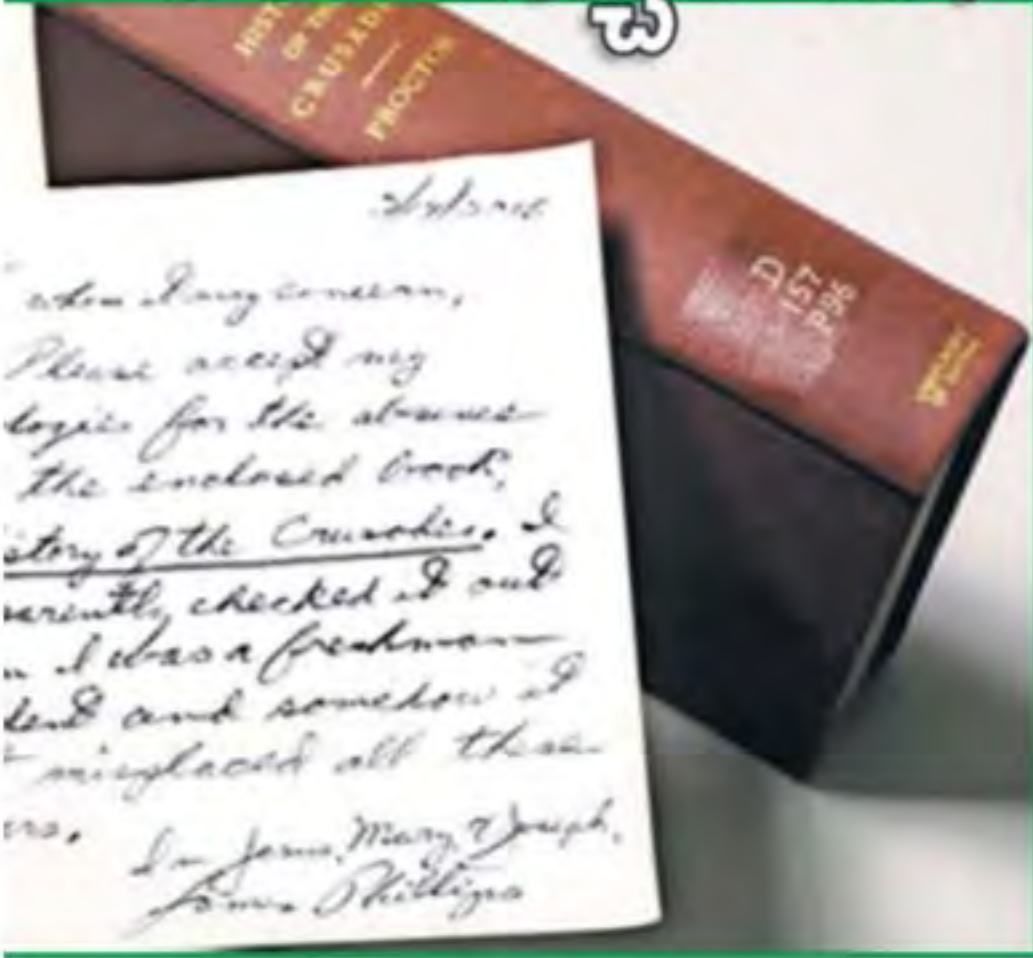 3
HIST
OF THE
CRUSADE
PROCTOR
D
157
P96
whom I may concern,
Please accept my
logies for the absence
the enclosed book,
istory of the Crusades. I
parently checked it out
n I was a freshman
dent and somehow it
t misplaced all these
ars.
In Jesus, Mary & Joseph,
James Phillips